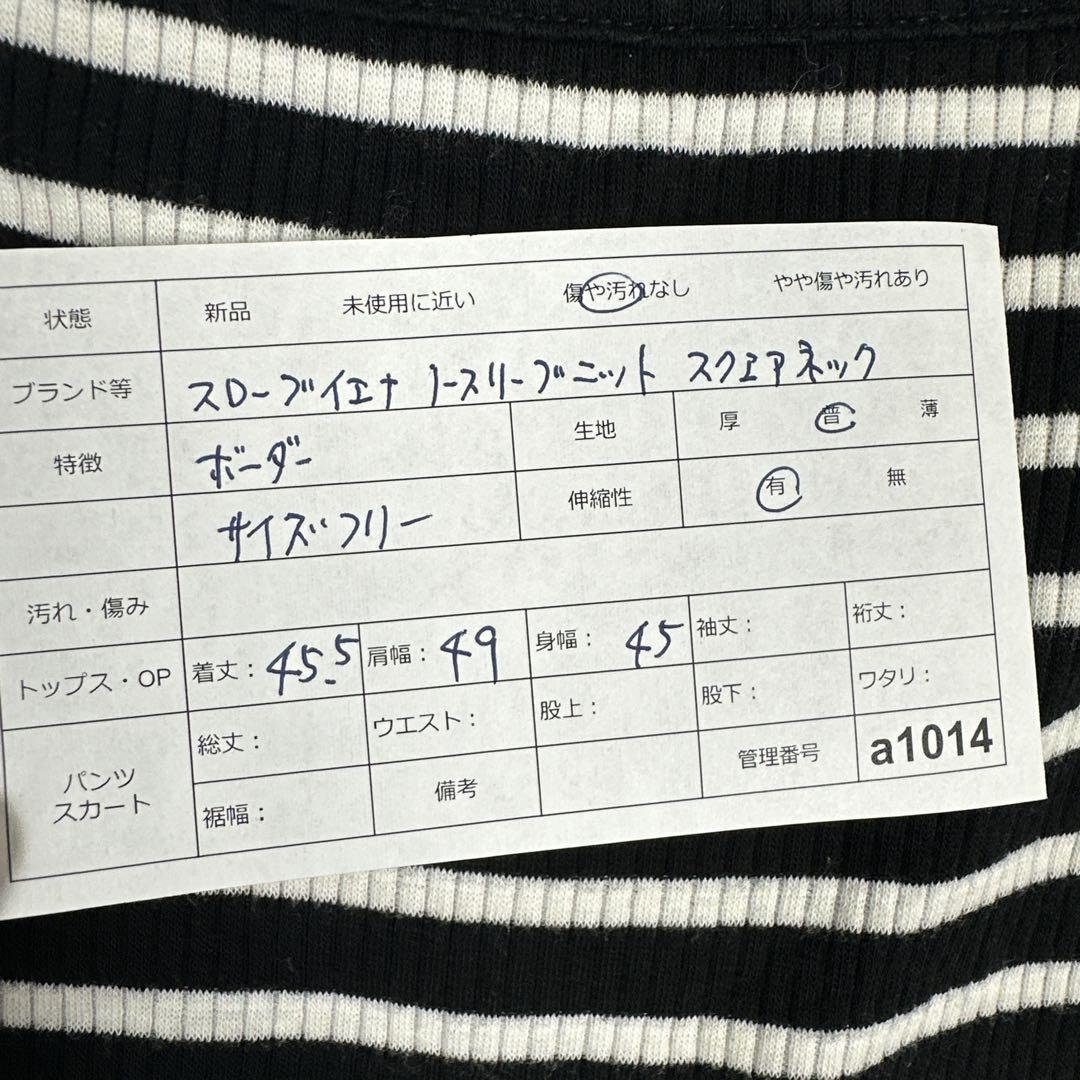 状態 新品 未使用に近い 傷や汚れなし やや傷や汚れあり
ブランド等 スローブイエナ ノースリーブニット スクエアネック
特徴 ボーダー 生地 厚 普 薄
サイズフリー 伸縮性 有 無
汚れ・傷み
トップス・OP 着丈： 45.5 肩幅： 49 身幅： 45 袖丈： 裄丈：
パンツ スカート 総丈： ウエスト： 股上： 股下： ワタリ：
裾幅： 備考 管理番号 a1014